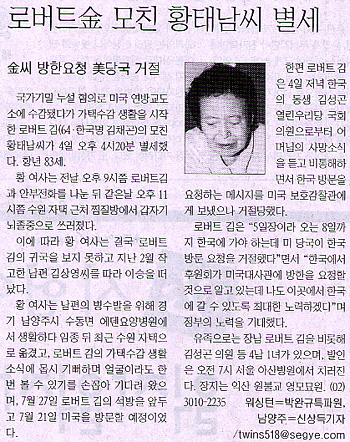 로버트金 모친 황태남씨 별세
金씨 방한요청 美당국 거절
국가기밀 누설 혐의로 미국 연방교도
소에 수감됐다가 가택수감 생활을 시작
한 로버트 김(64·한국명 김채곤)의 모친
황태남씨가 4일 오후 4시20분 별세했
다. 향년 83세.
황 여사는 전날 오후 9시쯤 로버트김
과 안부전화를 나눈 뒤 같은날 오후 11
시쯤 수원 자택 근처 찜질방에서 갑자기
뇌졸중으로 쓰러졌다.
이에 따라 황 여사는 결국 로버트
김의 귀국을 보지 못하고 지난 2월 작
고한 남편 김상영씨를 따라 이승을 떠
났다.
황 여사는 남편의 병수발을 위해 경
기 남양주시 수동면 에덴요양병원에
서 생활하다 임종 뒤 최근 수원 자택으
로 옮겼고, 로버트 김의 가택수감 생활
소식에 몹시 기뻐하며 얼굴이라도 한
번 볼 수 있기를 손꼽아 기다려 왔으
며, 7월 27일 로버트 김의 석방을 앞두
고 7월 21일 미국을 방문할 예정이었
다.
한편 로버트 김
은 4일 저녁 한국
의 동생 김성곤
열린우리당 국회
의원으로부터 어
머니의 사망소식
을 듣고 비통해하
면서 한국 방문을
요청하는 메시지를 미국 보호감찰관에
게 보냈으나 거절당했다.
로버트 김은 "5일장이라 오는 8일까
지 한국에 가야 하는데 미 당국이 한국
방문 요청을 거절했다"면서 "한국에서
후원회가 미국대사관에 방한을 요청할
것으로 알고 있는데 나도 이곳에서 한국
에 갈 수 있도록 최대한 노력하겠다"며
정부의 노력을 기대했다.
유족으로는 장남 로버트 김을 비롯해
김성곤 의원 등 4남 1녀가 있으며, 발인
은 오전 7시 서울 아산병원에서 치러진
다. 장지는 익산 원불교 영모묘원. (02)
3010-2235 워싱턴=박완규특파원,
남양주=신상득기자
/twins518@segye.com